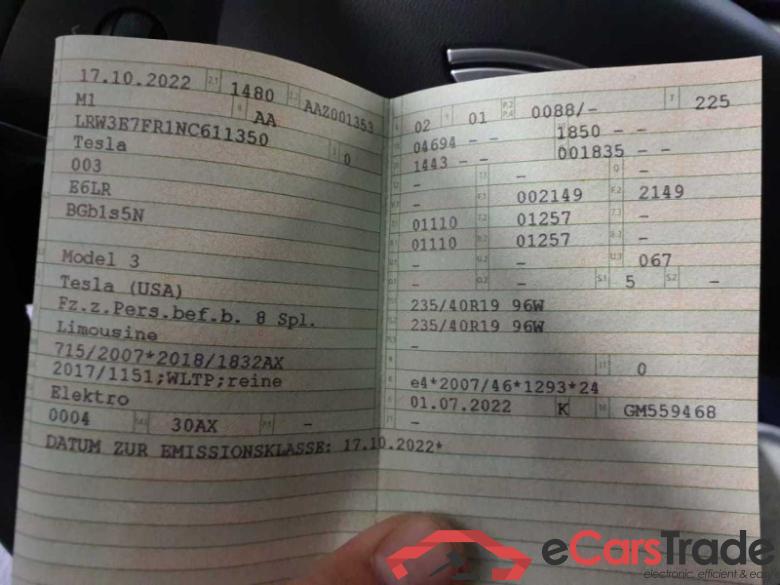 17.10.2022 2.1 1480 2.2 AAZ001353
M1 AA
LRW3E7FR1NC611350 0
Tesla
003
E6LR
BGb1s5N
Model 3
Tesla (USA)
Fz.z.Pers.bef.b. 8 Spl.
Limousine
715/2007*2018/1832AX
2017/1151;WLTP;reine
Elektro
0004 30AX -
DATUM ZUR EMISSIONSKLASSE: 17.10.2022*
02 01 P.2 P.4 0088/- T 225
04694 - - 1850 - -
1443 - - 001835 - -
- - -
- F.1 002149 F.2 2149
01110 7.2 01257 7.3 -
01110 8.2 01257 8.3 -
- U.2 - U.3 067
- O.2 - S.1 5 S.2 -
235/40R19 96W
235/40R19 96W
-
0
e4*2007/46*1293*24
01.07.2022 K GM559468
-
eCarsTrade
electronic, efficient & eco